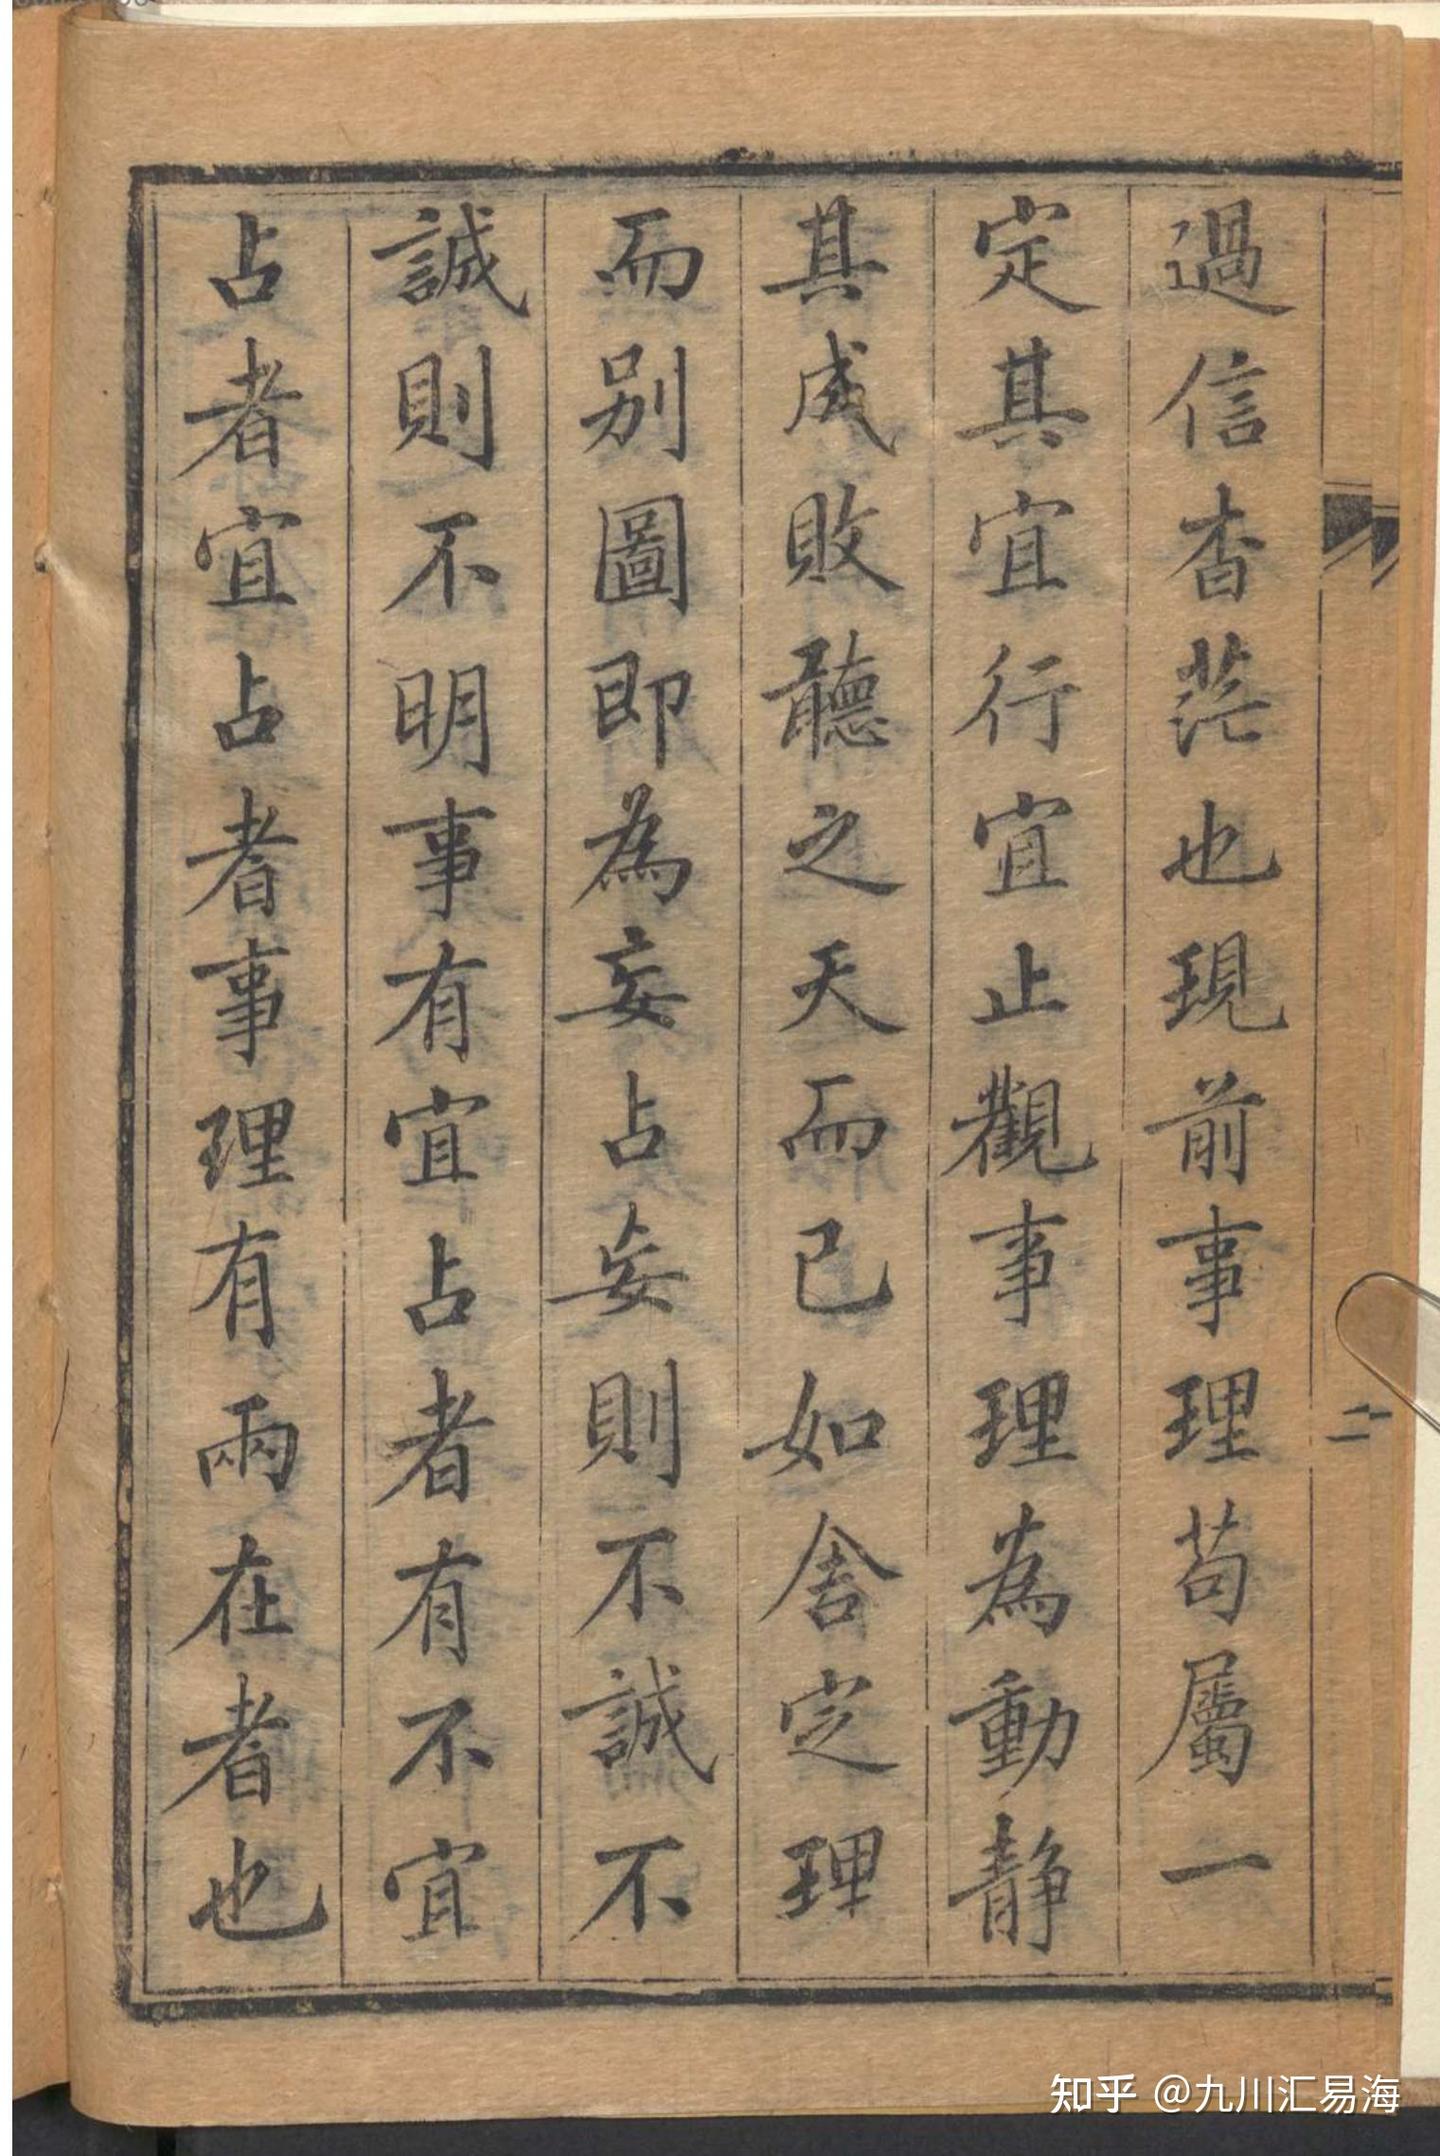 過信杳茫也現前事理苟屬一
定其宜行宜止觀事理為動靜
其成敗聽之天而已如舍定理
而别圖即為妄占妄則不誠不
誠則不明事有宜占者有不宜
占者宜占者事理有兩在者也
二
知乎 @九川汇易海